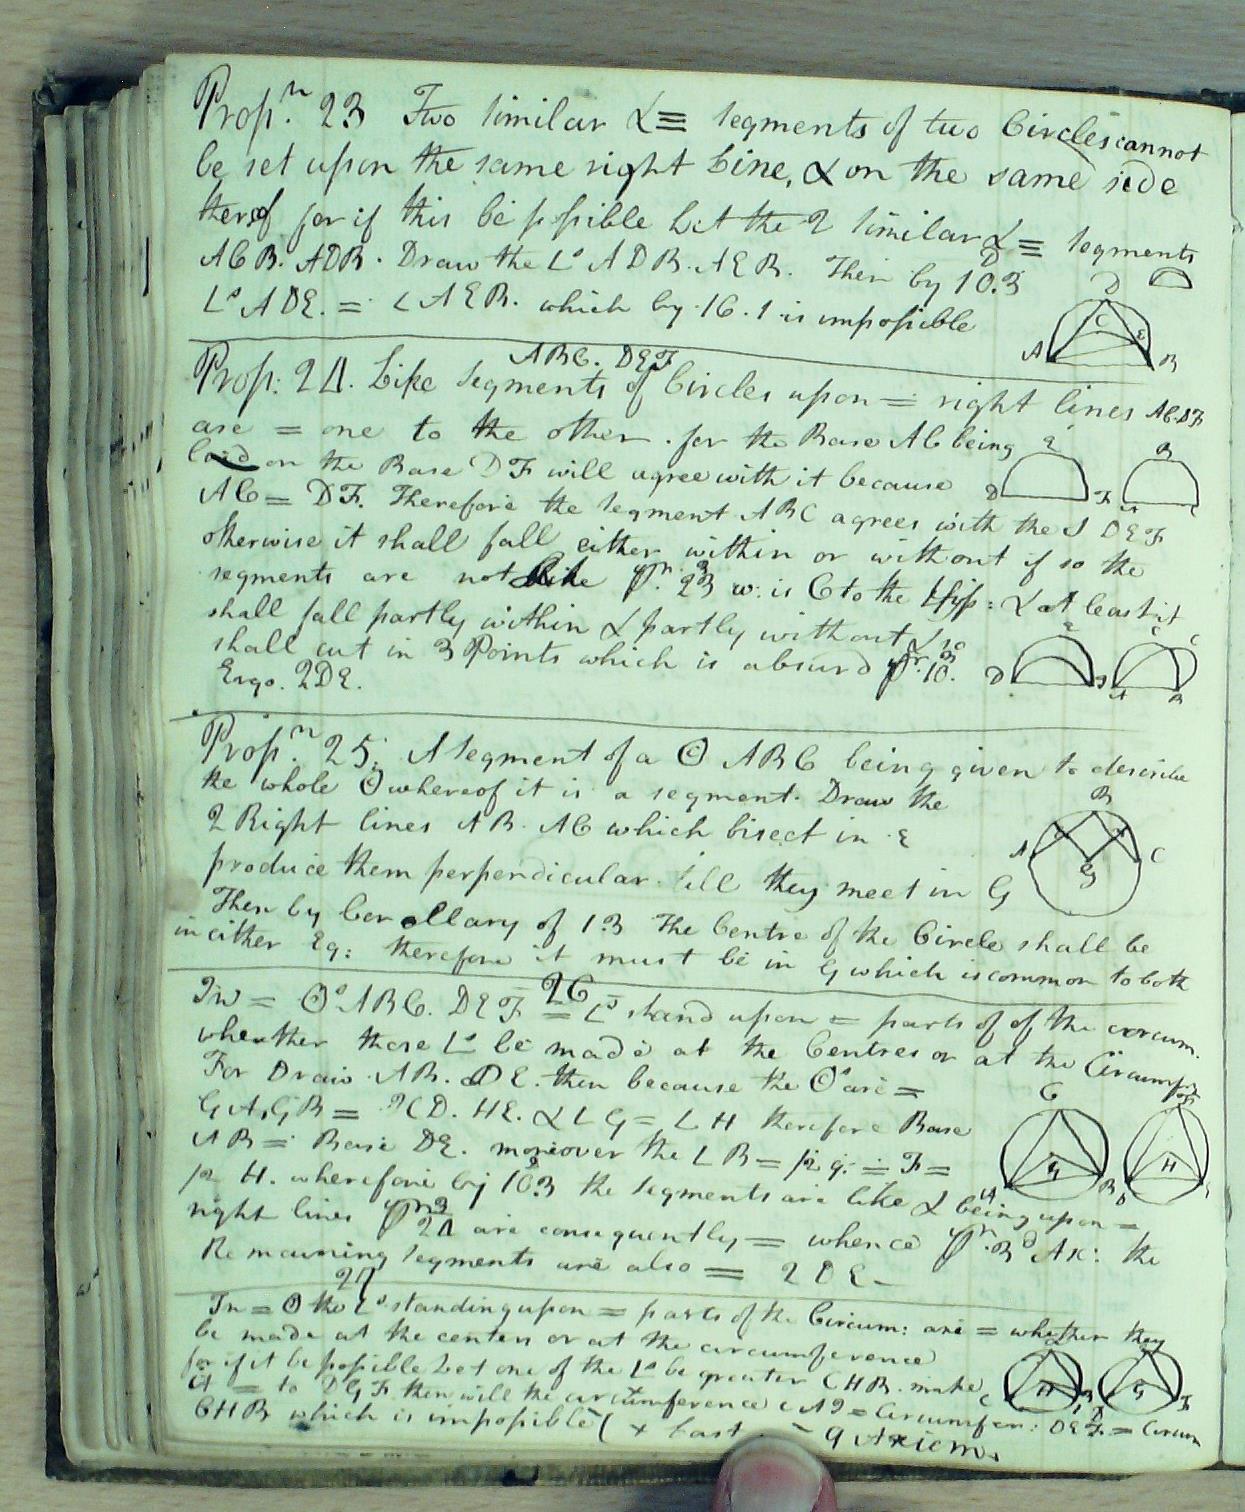 Prop.n 23 Two similar & ≡ segments of two Circles cannot
be set upon the same right Line, & on the same side
thereof for if this be possible Let the 2 similar & ≡ segments
ACB. ADB. Draw the Ls ADB. AEB. Then by 10.3
Ls ADE. = L AEB. which by 16.1 is impossible
D
C
E
A
B
ABC. DEF
Prop: 24. Like Segments of Circles upon = right lines AC.DF
are = one to the other. for the Base AC being
laid on the Base DF will agree with it because
AC = DF. Therefore the segment ABC agrees with the S DEF
otherwise it shall fall either within or without if so the
segments are not like pr. 23 3 w: is C to the Hyp: & at least it
shall fall partly within & partly without & so
shall cut in 3 Points which is absurd pr. 10. 3
Ergo. 2DE.
Prop.n 25. A Segment of a ʘ ABC being given to describe
the whole ʘ whereof it is a segment. Draw the
2 Right lines AB. AC which bisect in . E
produce them perpendicular till they meet in G
Then by Corollary of 1.3 The Centre of the Circle shall be
in either Eg: therefore it must be in G which is common to both
B
A
C
G
26
In = ʘs ABC. DEF = Ls stand upon = parts of of the circum.
wheather those Ls be made at the Centres or at the Circumf
For Draw AB. DE. then because the ʘs are =
GA, GB = HD. HE. & L G = L H therefore Base
AB = Base DE. moreover the L B = ½ g. = F =
½ H. wherefore by 10.3 the segments are like & being upon =
right lines pr 24 3 are consequently = whence pr. 3d Ax: the
Remaining segments are also = 2DE -
C
G
A
B
H
27
In = ʘ the Ls standing upon = parts of the Circum: are = whether they
be made at the centers or at the circumference
for if it be possible Let one of the Ls be greater CHB. make
it = to DGF then will the circumference CAI = Circumfer: DEF = Circum
CHB which is impossible ( x Last - 9 Axiom.